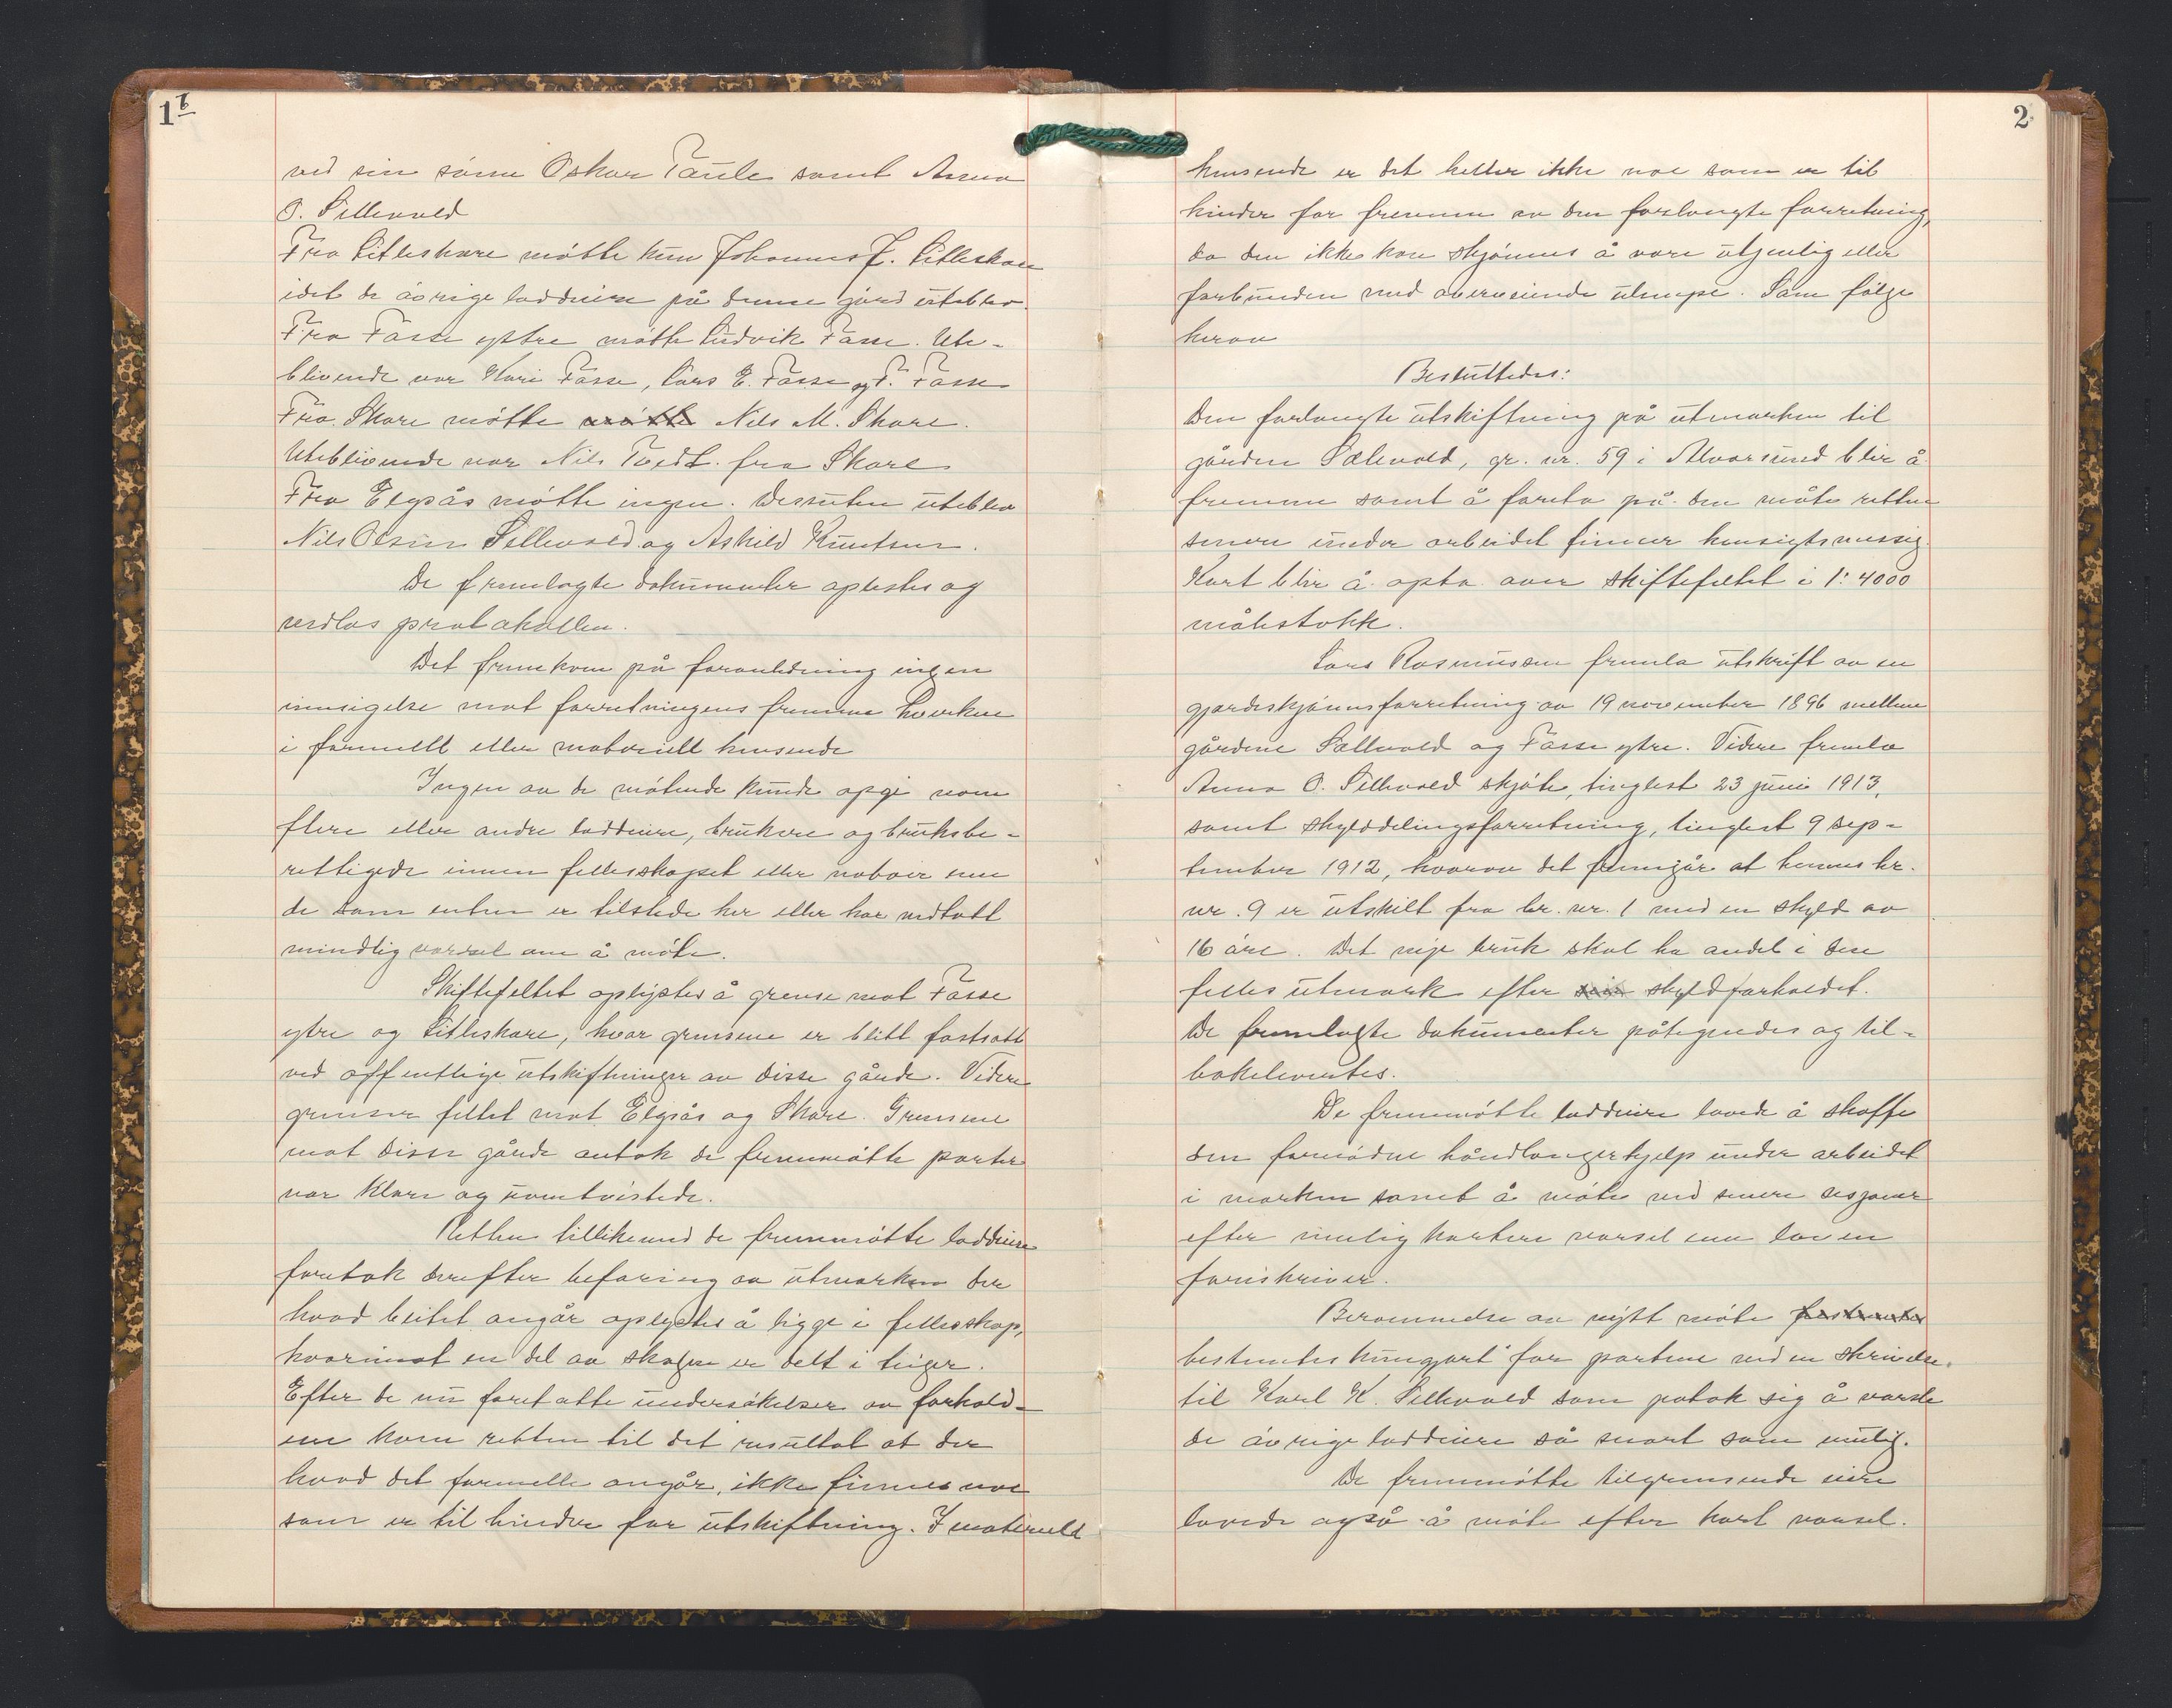 1b
ved sin sønn Oskar Taule samt Anna
O. Sellevold
Fra Litleskare møtte kun Johannes J. Litleskare
idet de øvrige loddeiere på denne gård uteblev.
Fra Fosse ytre møtte Ludvik Fosse. Ute-
blivende var Kari Fosse, Lars E. Fosse og T. Fosse
Fra Skare møtte møtte Nils M. Skare.
Uteblivende var Nils Tvedt fra Skare
Fra Elgsås møtte ingen. Dessuten uteblev
Nils Olsen Sellevold og Askild Knutsen.
De fremlagte dokumenter oplestes og
vedlas protokollen.
Det fremkom på foranledning ingen
innsigelse mot forretningens fremme hverken
i formell eller materiell henseende
Ingen av de møtende kunde opgi noen
flere eller andre loddeiere, brukere og bruksbe-
rettigede innen fellesskapet eller naboer enn
de som enten er tilstede her eller har vedtatt
mindlig varsel om å møte.
Skiftefeltet oplystes å grense mot Fosse
ytre og Litleskare, hvor grensene er blitt fastsatt
ved offentlige utskiftninger av disse gårde. Videre
grenser feltet mot Elgsås og Skare. Grensene
mot disse gårde antok de fremmøtte parter
var klare og uomtvistede.
Retten tillikemed de fremmøtte loddeiere
foretok derefter befaring av utmarken der
hvad beitet angår oplystes å ligge i fellesskap,
hvorimot en del av skogen er delt i teiger.
Efter de nu foretatte undersøkelser av forhold-
ene kom retten til det resultat at der
hvad det formelle angår, ikke finnes noe
som er til hinder for utskiftning. I materiell
2
henseende er det heller ikke noe som er til
hinder for fremme av den forlangte forretning,
da den ikke kan skjønnes å være utjenlig eller
forbunden med overveiende ulempe. Som følge
herav
Besluttedes:
Den forlangte utskiftning på utmarken til
gården Sælevold, gr. nr. 59 i Alversund blir å
fremme samt å foreta på den måte retten
senere under arbeidet finner hensigtsmessig.
Kart blir å opta over skiftefeltet i 1:4000
målestokk.
Lars Rasmussen fremla utskrift av en
gjerdeskjønnsforretning av 19 november 1896 mellem
gårdene Sællevold og Fosse ytre. Videre fremla
Anna O. Sellevold skjøte, tinglest 23 juni 1913,
samt skylddelingsforretning, tinglest 9 sep-
tember 1912, hvorav det fremgår at hennes br.
nr. 9 er utskilt fra br. nr. 1 med en skyld av
16 øre. Det nye bruk skal ha andel i den
felles utmark efter sin skyldforholdet.
De fremlagte dokumenter påtegnedes og til-
bakelevertes.
De fremmøtte loddeiere lovede å skaffe
den fornødne håndlangerhjelp under arbeidet
i marken samt å møte ved senere sesjoner
efter mulig kortere varsel enn loven
foreskriver.
Berammelse av nytt møte
bestemtes kungjort for partene ved en skrivelse
til Karl K. Sellevold som påtok sig å varsle
de øvrige loddeiere så snart som mulig.
De fremmøtte tilgrensende eiere
lovede også å møte efter kort varsel.